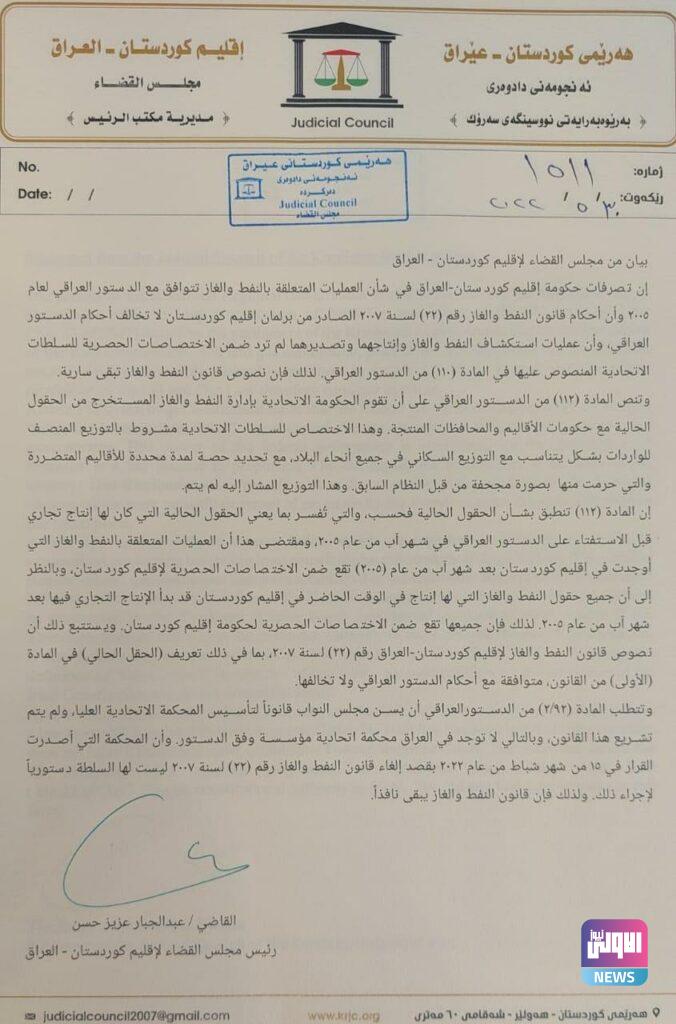 هەرێمی کوردستان - عێراق
ئەنجومەنی دادوەری
بەرێوەبەرایەتی نووسینگەی سەرۆك
Judicial Council
إقليم كوردستان - العراق
مجلس القضاء
مديرية مكتب الرئيس
ژمارە: ١٥١١
رێکەوت: ٣٠/ ٥/ ٢٠٢٢
هەرێمی کوردستانی عیراق
ئەنجومەنی دادوەری
دەرکردە
Judicial Council
مجلس القضاء
No.
Date: / /
بيان من مجلس القضاء لإقليم كوردستان - العراق
إن تصرفات حكومة إقليم كوردستان-العراق في شأن العمليات المتعلقة بالنفط والغاز تتوافق مع الدستور العراقي لعام
٢٠٠٥ وأن أحكام قانون النفط والغاز رقم (٢٢) لسنة ٢٠٠٧ الصادر من برلمان إقليم كوردستان لا تخالف أحكام الدستور
العراقي، وأن عمليات استكشاف النفط والغاز وإنتاجهما وتصديرهما لم ترد ضمن الاختصاصات الحصرية للسلطات
الاتحادية المنصوص عليها في المادة (١١٠) من الدستور العراقي. لذلك فإن نصوص قانون النفط والغاز تبقى سارية.
وتنص المادة (١١٢) من الدستور العراقي على أن تقوم الحكومة الاتحادية بإدارة النفط والغاز المستخرج من الحقول
الحالية مع حكومات الأقاليم والمحافظات المنتجة. وهذا الاختصاص للسلطات الاتحادية مشروط بالتوزيع المنصف
للواردات بشكل يتناسب مع التوزيع السكاني في جميع أنحاء البلاد، مع تحديد حصة لمدة محددة للأقاليم المتضررة
والتي حرمت منها بصورة مجحفة من قبل النظام السابق. وهذا التوزيع المشار إليه لم يتم.
إن المادة (١١٢) تنطبق بشأن الحقول الحالية فحسب، والتي تُفسر بما يعني الحقول الحالية التي كان لها إنتاج تجاري
قبل الاستفتاء على الدستور العراقي في شهر آب من عام ٢٠٠٥، ومقتضى هذا أن العمليات المتعلقة بالنفط والغاز التي
أوجدت في إقليم كوردستان بعد شهر آب من عام (٢٠٠٥) تقع ضمن الاختصاصات الحصرية لإقليم كوردستان، وبالنظر
إلى أن جميع حقول النفط والغاز التي لها إنتاج في الوقت الحاضر في إقليم كوردستان قد بدأ الإنتاج التجاري فيها بعد
شهر آب من عام ٢٠٠٥. لذلك فإن جميعها تقع ضمن الاختصاصات الحصرية لحكومة إقليم كوردستان. ويستتبع ذلك أن
نصوص قانون النفط والغاز لإقليم كوردستان-العراق رقم (٢٢) لسنة ٢٠٠٧، بما في ذلك تعريف (الحقل الحالي) في المادة
(الأولى) من القانون، متوافقة مع أحكام الدستور العراقي ولا تخالفها.
وتتطلب المادة (٢/٩٢) من الدستورالعراقي أن يسن مجلس النواب قانوناً لتأسيس المحكمة الاتحادية العليا، ولم يتم
تشريع هذا القانون، وبالتالي لا توجد في العراق محكمة اتحادية مؤسسة وفق الدستور. وأن المحكمة التي أصدرت
القرار في ١٥ من شهر شباط من عام ٢٠٢٢ بقصد إلغاء قانون النفط والغاز رقم (٢٢) لسنة ٢٠٠٧ ليست لها السلطة دستورياً
لإجراء ذلك. ولذلك فإن قانون النفط والغاز يبقى نافذاً.
القاضي / عبدالجبار عزيز حسن
رئيس مجلس القضاء لإقليم كوردستان - العراق
الاولى نيوز
NEWS
هەرێمی کوردستان - هەولێر - شەقامی ٦٠ مەتری
www.krjc.org
judicialcouncil2007@gmail.com